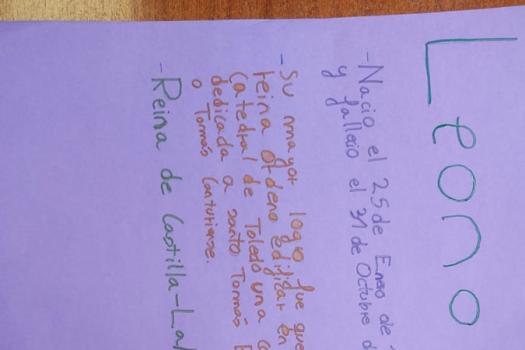 Leono
- Nacio el 25 de Enero de
y fallecio el 31 de Octubre d
- Su mayor logro fue que
reina Ordeno edificar en
Catedral de Toledo una
dedicada a santo Tomás
o Tomás Canturiense.
- Reina de Castilla-La